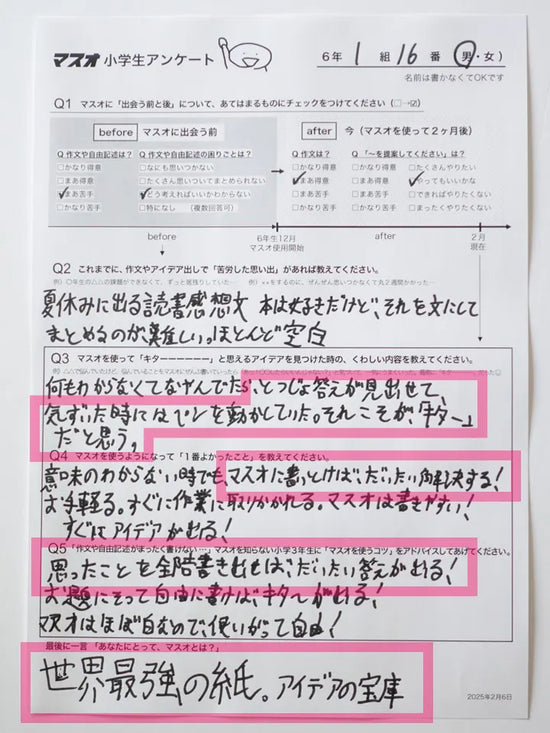 マスオ 小学生アンケート
6年 1 組 16 番 (男・女)
名前は書かなくてOKです
Q1 マスオに「出会う前と後」について、あてはまるものにチェックをつけてください(□→☑)
before マスオに出会う前
after 今(マスオを使って2ヶ月後)
Q 作文や自由記述は? Q 作文や自由記述の困りごとは? Q 作文は? Q「〜を提案してください」は?
□かなり得意 □なにも思いつかない □かなり得意 □たくさんやりたい
□まあ得意 □たくさん思いついてまとめられない ☑まあ得意 ☑やってもいいかな
☑まあ苦手 ☑どう考えればいいかわからない □まあ苦手 □できればやりたくない
□かなり苦手 □特になし (複数回答可) □かなり苦手 □まったくやりたくない
before 6年生12月 after 2月
マスオ使用開始 現在
Q2 これまでに、作文やアイデア出しで「苦労した思い出」があれば教えてください。
夏休みに出る読書感想文 本は好きだけど、それを文にして
まとめるのが難しい。ほとんど空白
Q3 マスオを使って「キターーーーーー」と思えるアイデアを見つけた時の、くわしい内容を教えてください。
何もわからなくてなやんでたら、とつじょ答えが見出せて、
気ずいた時にはペンを動かしていた。それこそが、「キター」
だと思う。
Q4 マスオを使うようになって「1番よかったこと」を教えてください。
意味のわからない時でも、マスオに書いとけば、だいたい解決する!
お手軽る。すぐに作業に取りかかれる。マスオは書きやすい!
すぐにアイデアがでる!
Q5「作文や自由記述がまったく書けない…」マスオを知らない小学3年生に「マスオを使うコツ」をアドバイスしてあげてください。
思ったことを全部書き出せば、だいたい答えが出る!
お題にそって自由に書けば、キターがでる!
マスオはほぼ白むので、使いがって自由!
最後に一言「あなたにとって、マスオとは?」
世界最強の紙。アイデアの宝庫
2025年2月6日